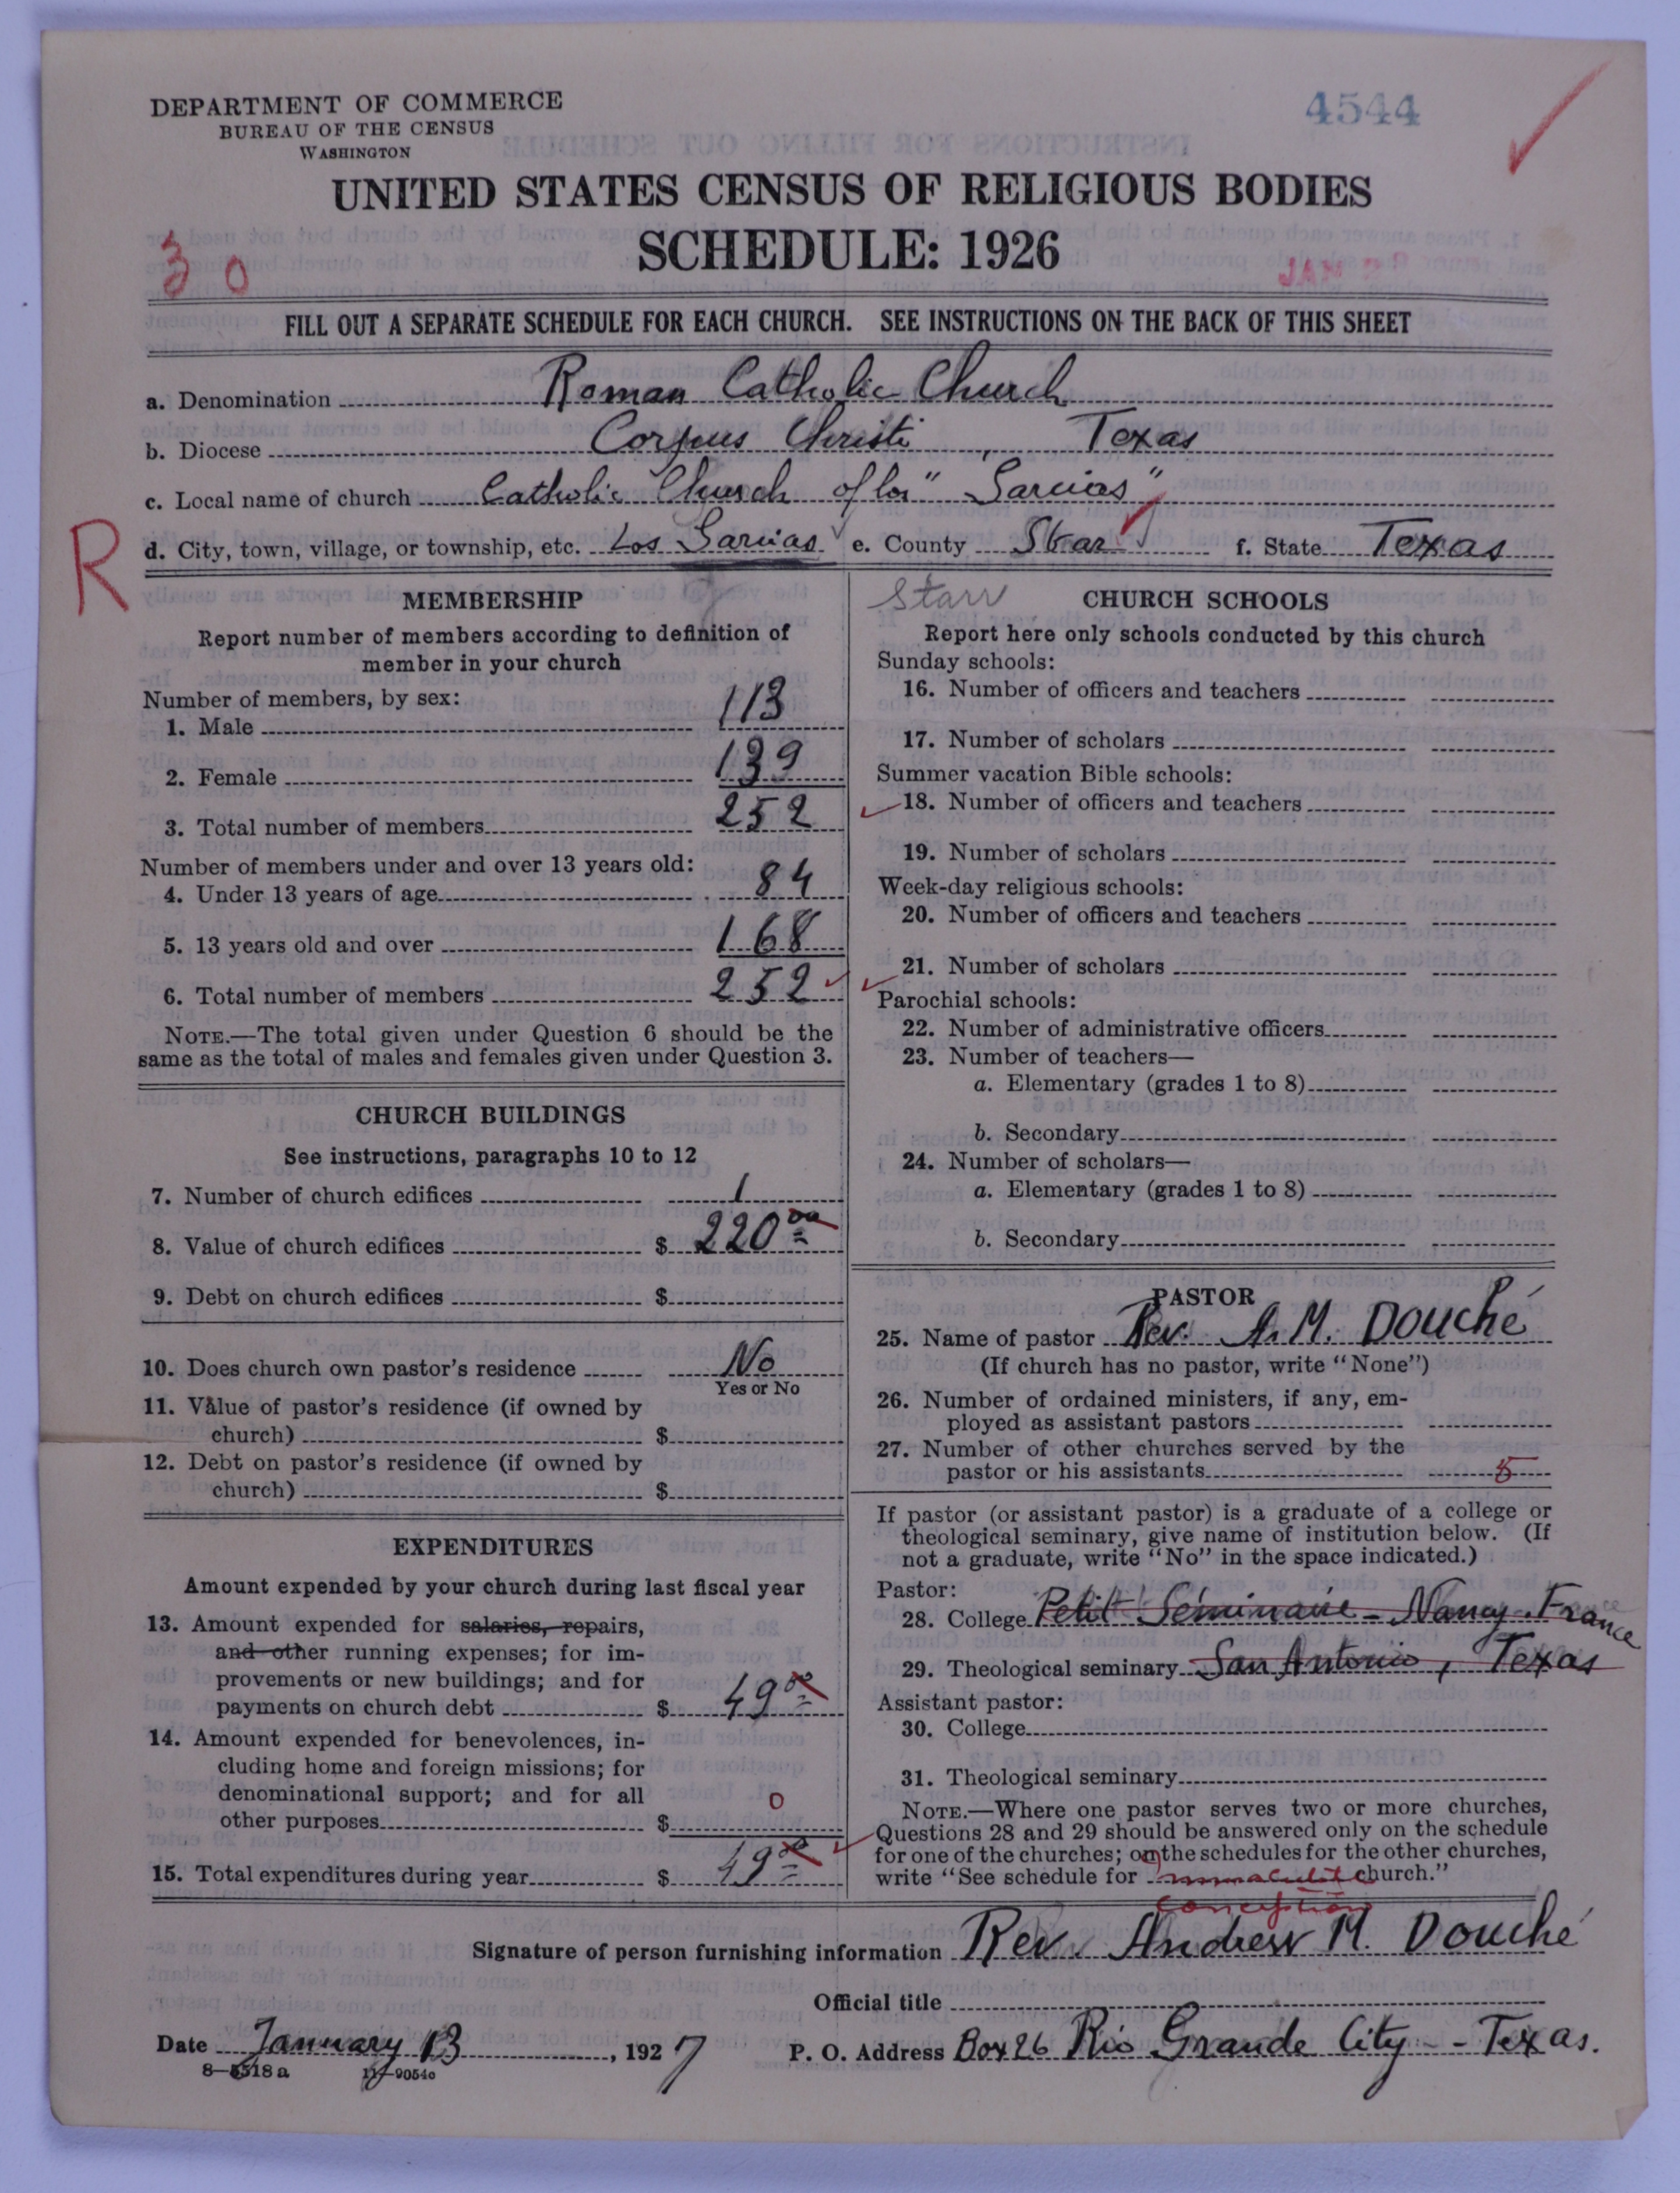 DEPARTMENT OF COMMERCE
BUREAU OF THE CENSUS
WASHINGTON
4544
UNITED STATES CENSUS OF RELIGIOUS BODIES
SCHEDULE: 1926
30
JAN
FILL OUT A SEPARATE SCHEDULE FOR EACH CHURCH. SEE INSTRUCTIONS ON THE BACK OF THIS SHEET
a. Denomination Roman Catholic Church
b. Diocese Corpus Christi, Texas
c. Local name of church Catholic Church of los "Sarcias"
R
d. City, town, village, or township, etc. Los Sarcias e. County Star f. State Texas
Starr
MEMBERSHIP
Report number of members according to definition of
member in your church
Number of members, by sex:
1. Male 113
2. Female 139
3. Total number of members 252
Number of members under and over 13 years old:
4. Under 13 years of age 84
5. 13 years old and over 168
6. Total number of members 252
NOTE.—The total given under Question 6 should be the
same as the total of males and females given under Question 3.
CHURCH BUILDINGS
See instructions, paragraphs 10 to 12
7. Number of church edifices 1
8. Value of church edifices $ 220 00
9. Debt on church edifices $
10. Does church own pastor's residence No
Yes or No
11. Value of pastor's residence (if owned by
church) $
12. Debt on pastor's residence (if owned by
church) $
EXPENDITURES
Amount expended by your church during last fiscal year
13. Amount expended for salaries, repairs,
and other running expenses; for im-
provements or new buildings; and for
payments on church debt $ 49 00
14. Amount expended for benevolences, in-
cluding home and foreign missions; for
denominational support; and for all
other purposes $ 0
15. Total expenditures during year $ 49 00
CHURCH SCHOOLS
Report here only schools conducted by this church
Sunday schools:
16. Number of officers and teachers
17. Number of scholars
Summer vacation Bible schools:
18. Number of officers and teachers
19. Number of scholars
Week-day religious schools:
20. Number of officers and teachers
21. Number of scholars
Parochial schools:
22. Number of administrative officers
23. Number of teachers—
a. Elementary (grades 1 to 8)
b. Secondary
24. Number of scholars—
a. Elementary (grades 1 to 8)
b. Secondary
PASTOR
25. Name of pastor Rev. A. M. Douché
(If church has no pastor, write "None")
26. Number of ordained ministers, if any, em-
ployed as assistant pastors
27. Number of other churches served by the
pastor or his assistants 5
If pastor (or assistant pastor) is a graduate of a college or
theological seminary, give name of institution below. (If
not a graduate, write "No" in the space indicated.)
Pastor:
28. College Petit Séminaire - Nancy. France
29. Theological seminary San Antonio, Texas
Assistant pastor:
30. College
31. Theological seminary
NOTE.—Where one pastor serves two or more churches,
Questions 28 and 29 should be answered only on the schedule
for one of the churches; on the schedules for the other churches,
write "See schedule for Immaculate church."
Conception
Signature of person furnishing information Rev. Andrew M. Douché
Official title
Date January 13, 1927 P. O. Address Box 26 Rio Grande City - Texas.
8—5518a 11—9054o